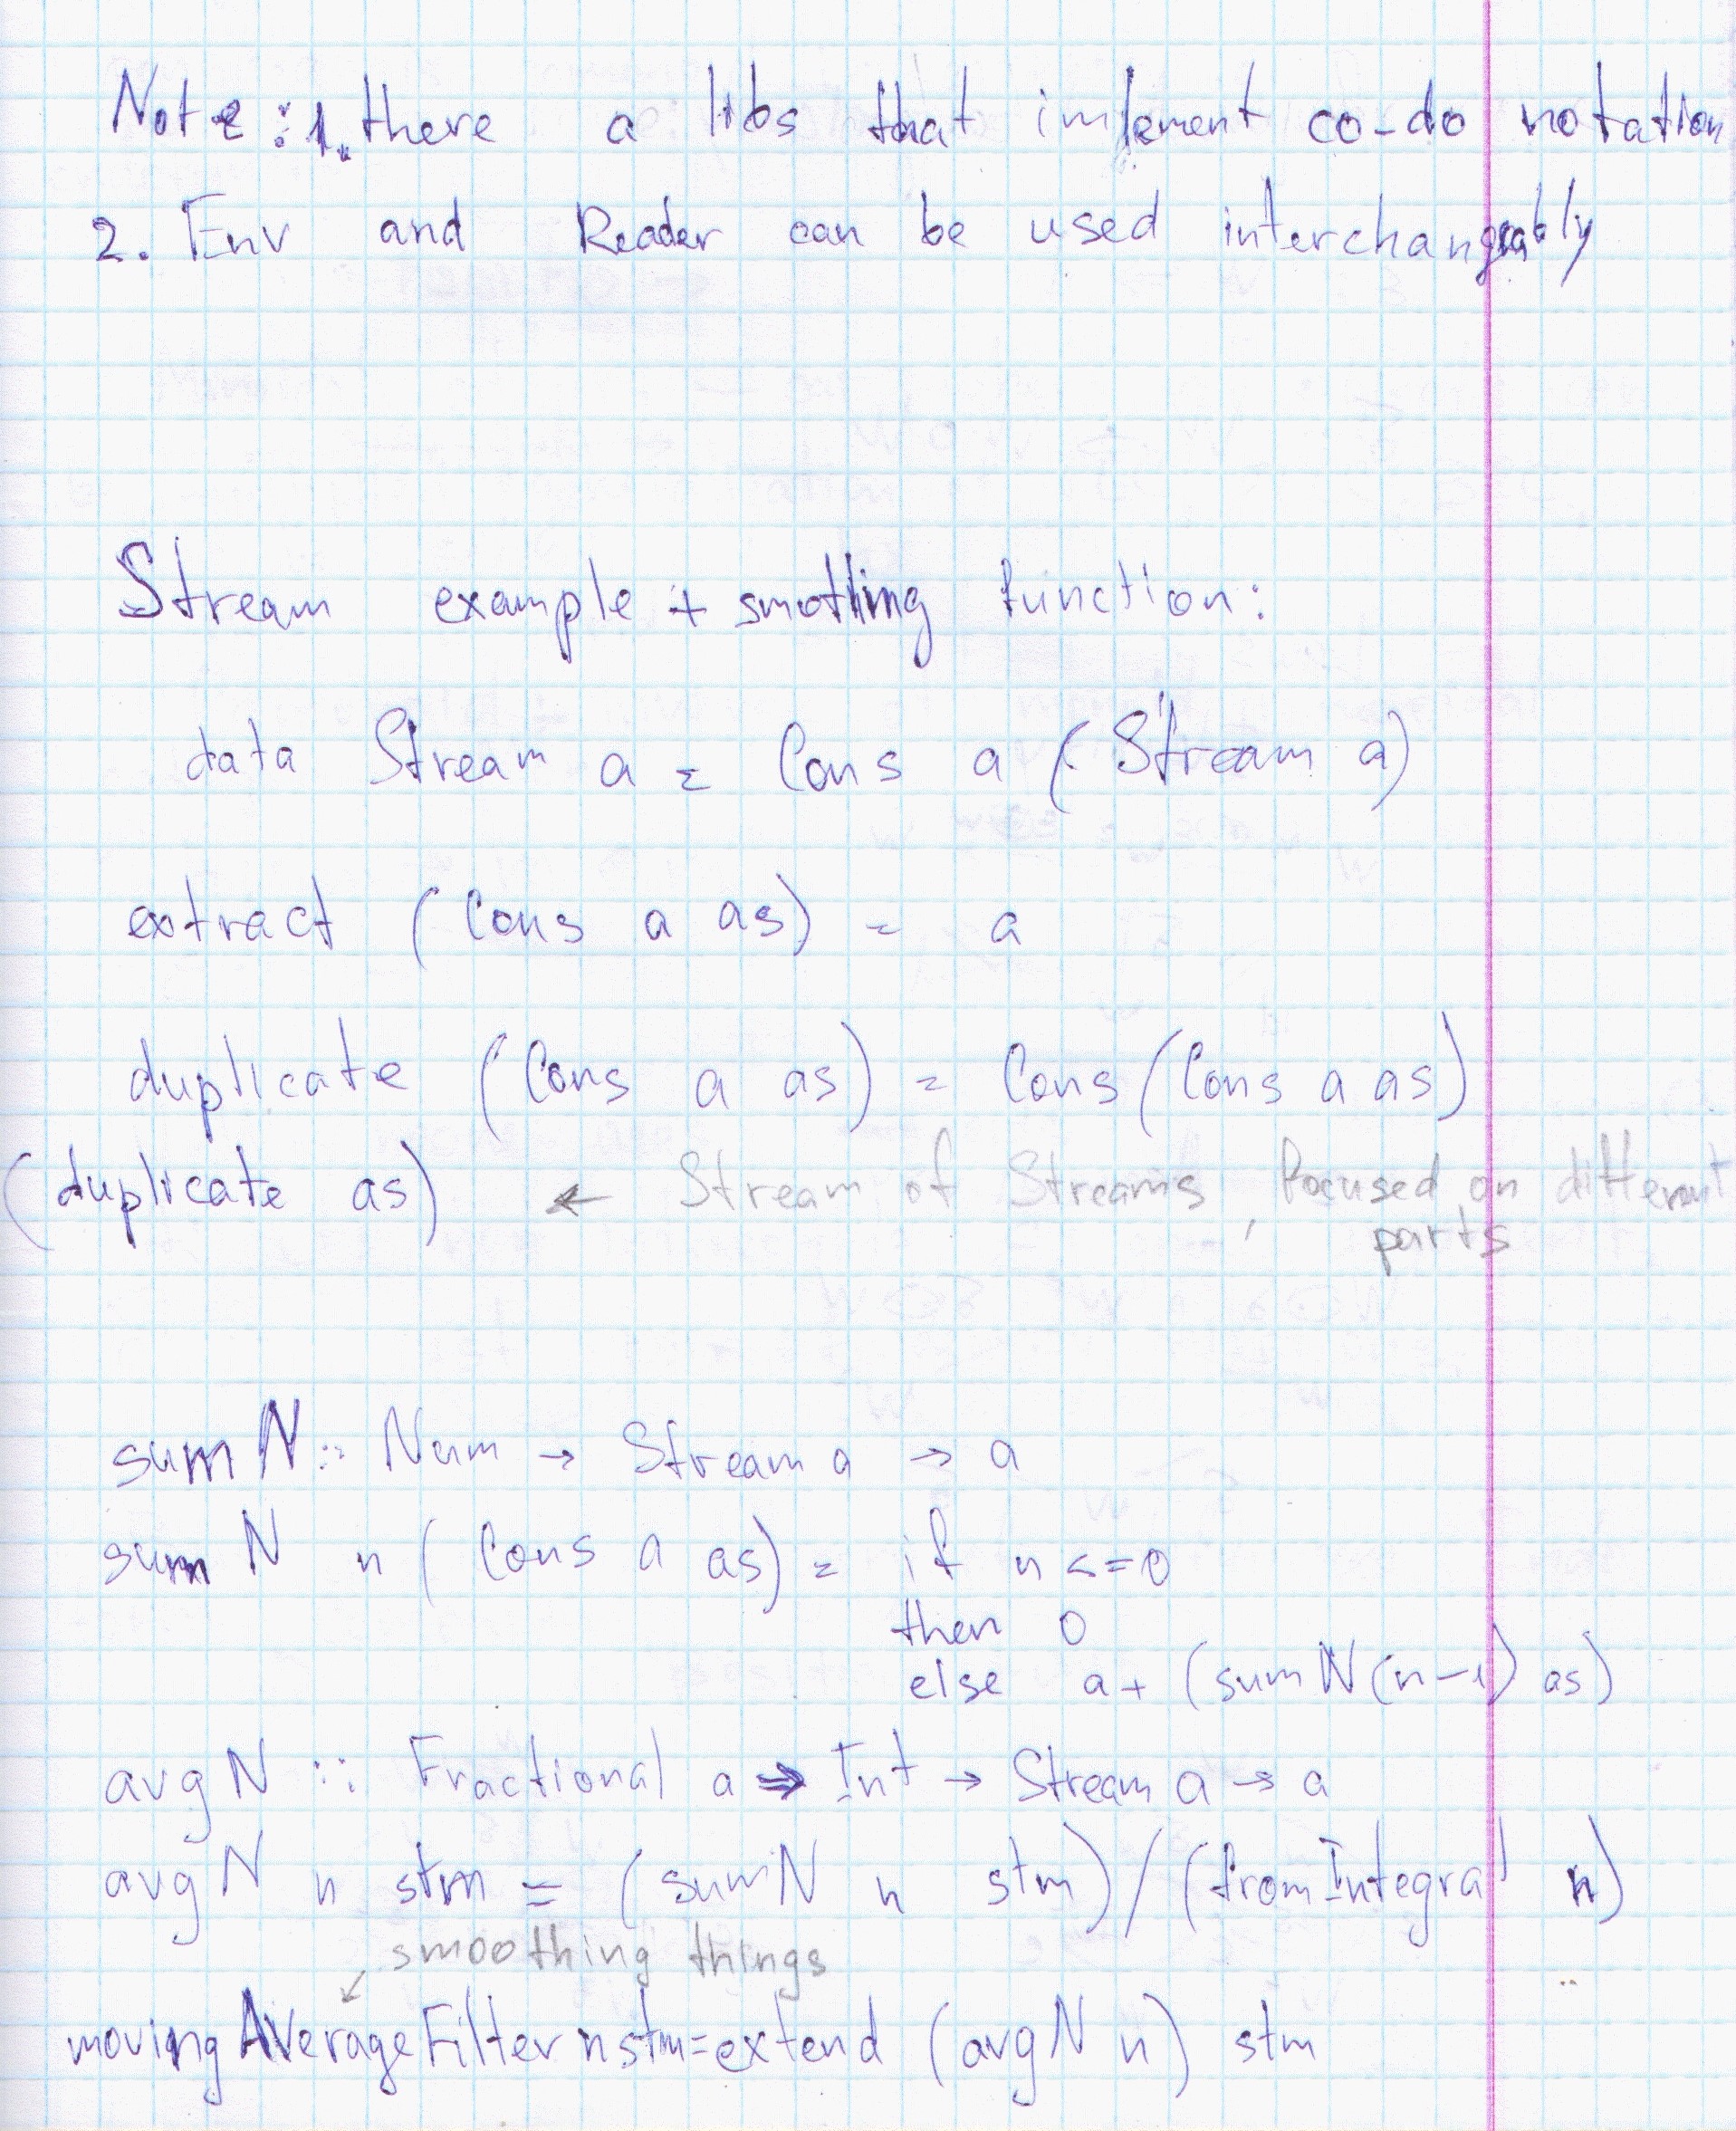 Note: 1. there a libs that implement co-do notation
2. Env and Reader can be used interchangeably
Stream example + smothing function:
data Stream a = Cons a (Stream a)
extract (Cons a as) = a
duplicate (Cons a as) = Cons (Cons a as)
(duplicate as) ← Stream of Streams, focused on different
parts
sumN :: Num → Stream a → a
sumN n (Cons a as) = if n <= 0
then 0
else a + (sumN (n-1) as)
avgN :: Fractional a ⇒ Int → Stream a → a
avgN n stm = (sumN n stm) / (fromIntegral n)
↙ smoothing things
movingAverageFilter n stm = extend (avgN n) stm